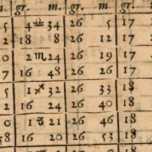 gr. m. gr. m. gr.
5 4♒34 26 5 17
2 18 8 26 12 17
0 2♏24 26 19 17
7 16 48 26 26 17
5 1♐32 26 33 18
16 24 26 40 18
0 1 21 26 46 18
8 16 20 26 53 18